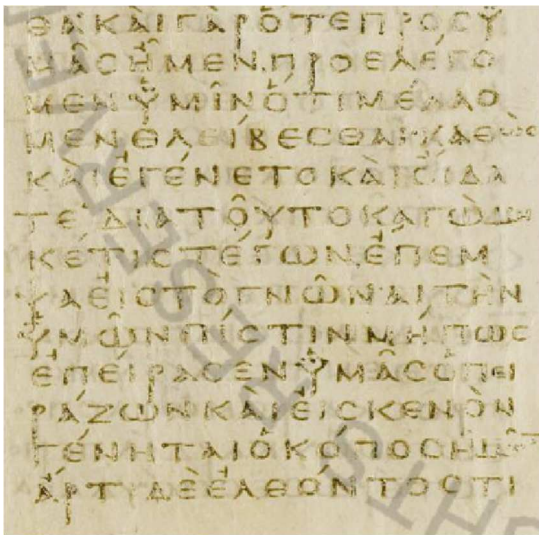 ΘΑΚΑΙΓΑΡΟΤΕΠΡΟϹΥ
ΜΑϹΗΜΕΝΠΡΟΕΛΕΓΟ
ΜΕΝΥΜΙΝΟΤΙΜΕΛΛΟ
ΜΕΝΘΛΕΙΒΕϹΘΑΙΚΑΘΩϹ
ΚΑΙΕΓΕΝΕΤΟΚΑΙΟΙΔΑ
ΤΕΔΙΑΤΟΥΤΟΚΑΓΩΜΗ
ΚΕΤΙϹΤΕΓΩΝΕΠΕΜ
ΨΑΕΙϹΤΟΓΝΩΝΑΙΤΗΝ
ΥΜΩΝΠΙϹΤΙΝΜΗΠΩϹ
ΕΠΕΙΡΑϹΕΝΥΜΑϹΟΠΕΙ
ΡΑΖΩΝΚΑΙΕΙϹΚΕΝΟΝ
ΓΕΝΗΤΑΙΟΚΟΠΟϹΗΜΩ
ΑΡΤΙΔΕΕΛΘΟΝΤΟϹΤΙ
HTS RESERVE